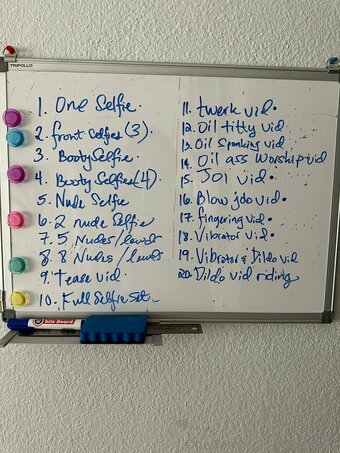 TRIPOLLO
1. One Selfie.
2. front selfies (3).
3. Booty Selfie.
4. Booty Selfies (4)
5. Nude Selfie
6. 2 nude Selfie
7. 5 Nudes/lewds
8. 8 Nudes/lewds
9. Tease vid.
10. Full Selfie set
11. twerk vid.
12. Oil titty vid.
13. Oil Spanking vid.
14. Oil ass Worship vid
15. JOI vid.
16. Blow job vid.
17. fingering vid.
18. Vibrator vid.
19. Vibrator & Dildo vid
20. Dildo vid riding
White Board